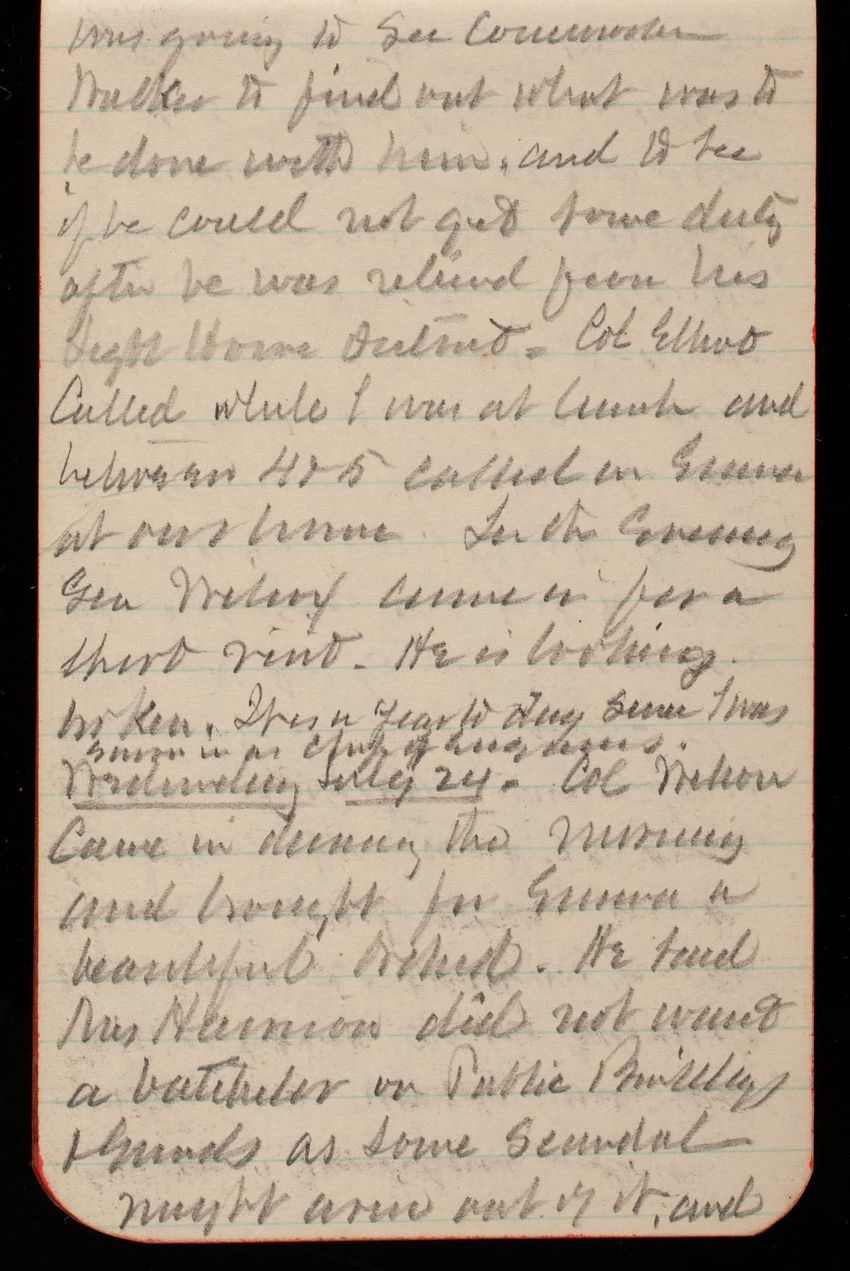 was going to see Commodore
Walker to find out what was to
be done with him, and to see
if he could not get some duty
after he was relieved from his
Light House District. Col Elliot
Called while I was at lunch and
between 4 & 5 called on Emma
at our house In the Evening
Gen Wilcox came in for a
short visit. He is looking
broken. It is a year to day since I was
sworn in as Chief of Engineers.
Wednesday July 24. Col Wilson
Came in during the morning
and brought for Emma a
beautiful Orchid. He said
Mrs Harrison did not want
a batchelor on Public Buildings
& Grounds as some scandal
might arise out of it, and